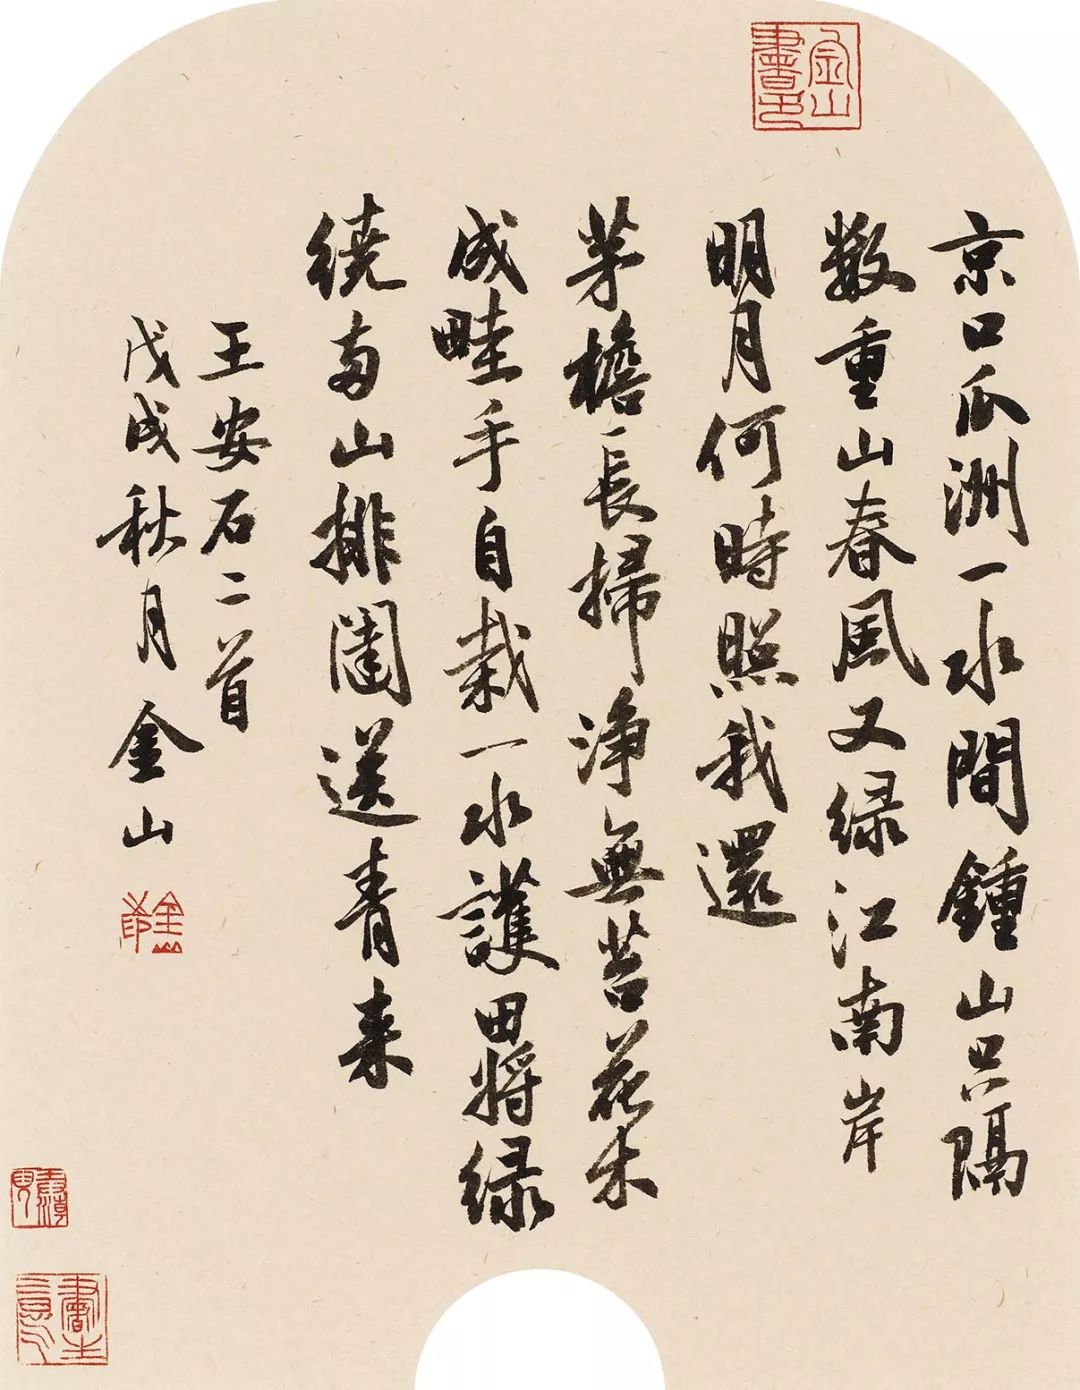 金山書印
京口瓜洲一水間鍾山只隔
數重山春風又緑江南岸
明月何時照我還
茅檐長掃淨無苔花木
成畦手自栽一水護田將緑
繞兩山排闥送青来
王安石二首
戊戌秋月金山
金山印